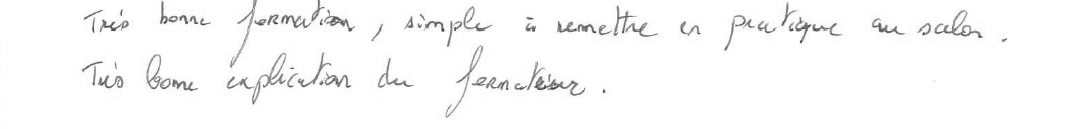 Très bonne formation, simple à remettre en pratique au salon.
Très bonne explication du formateur.